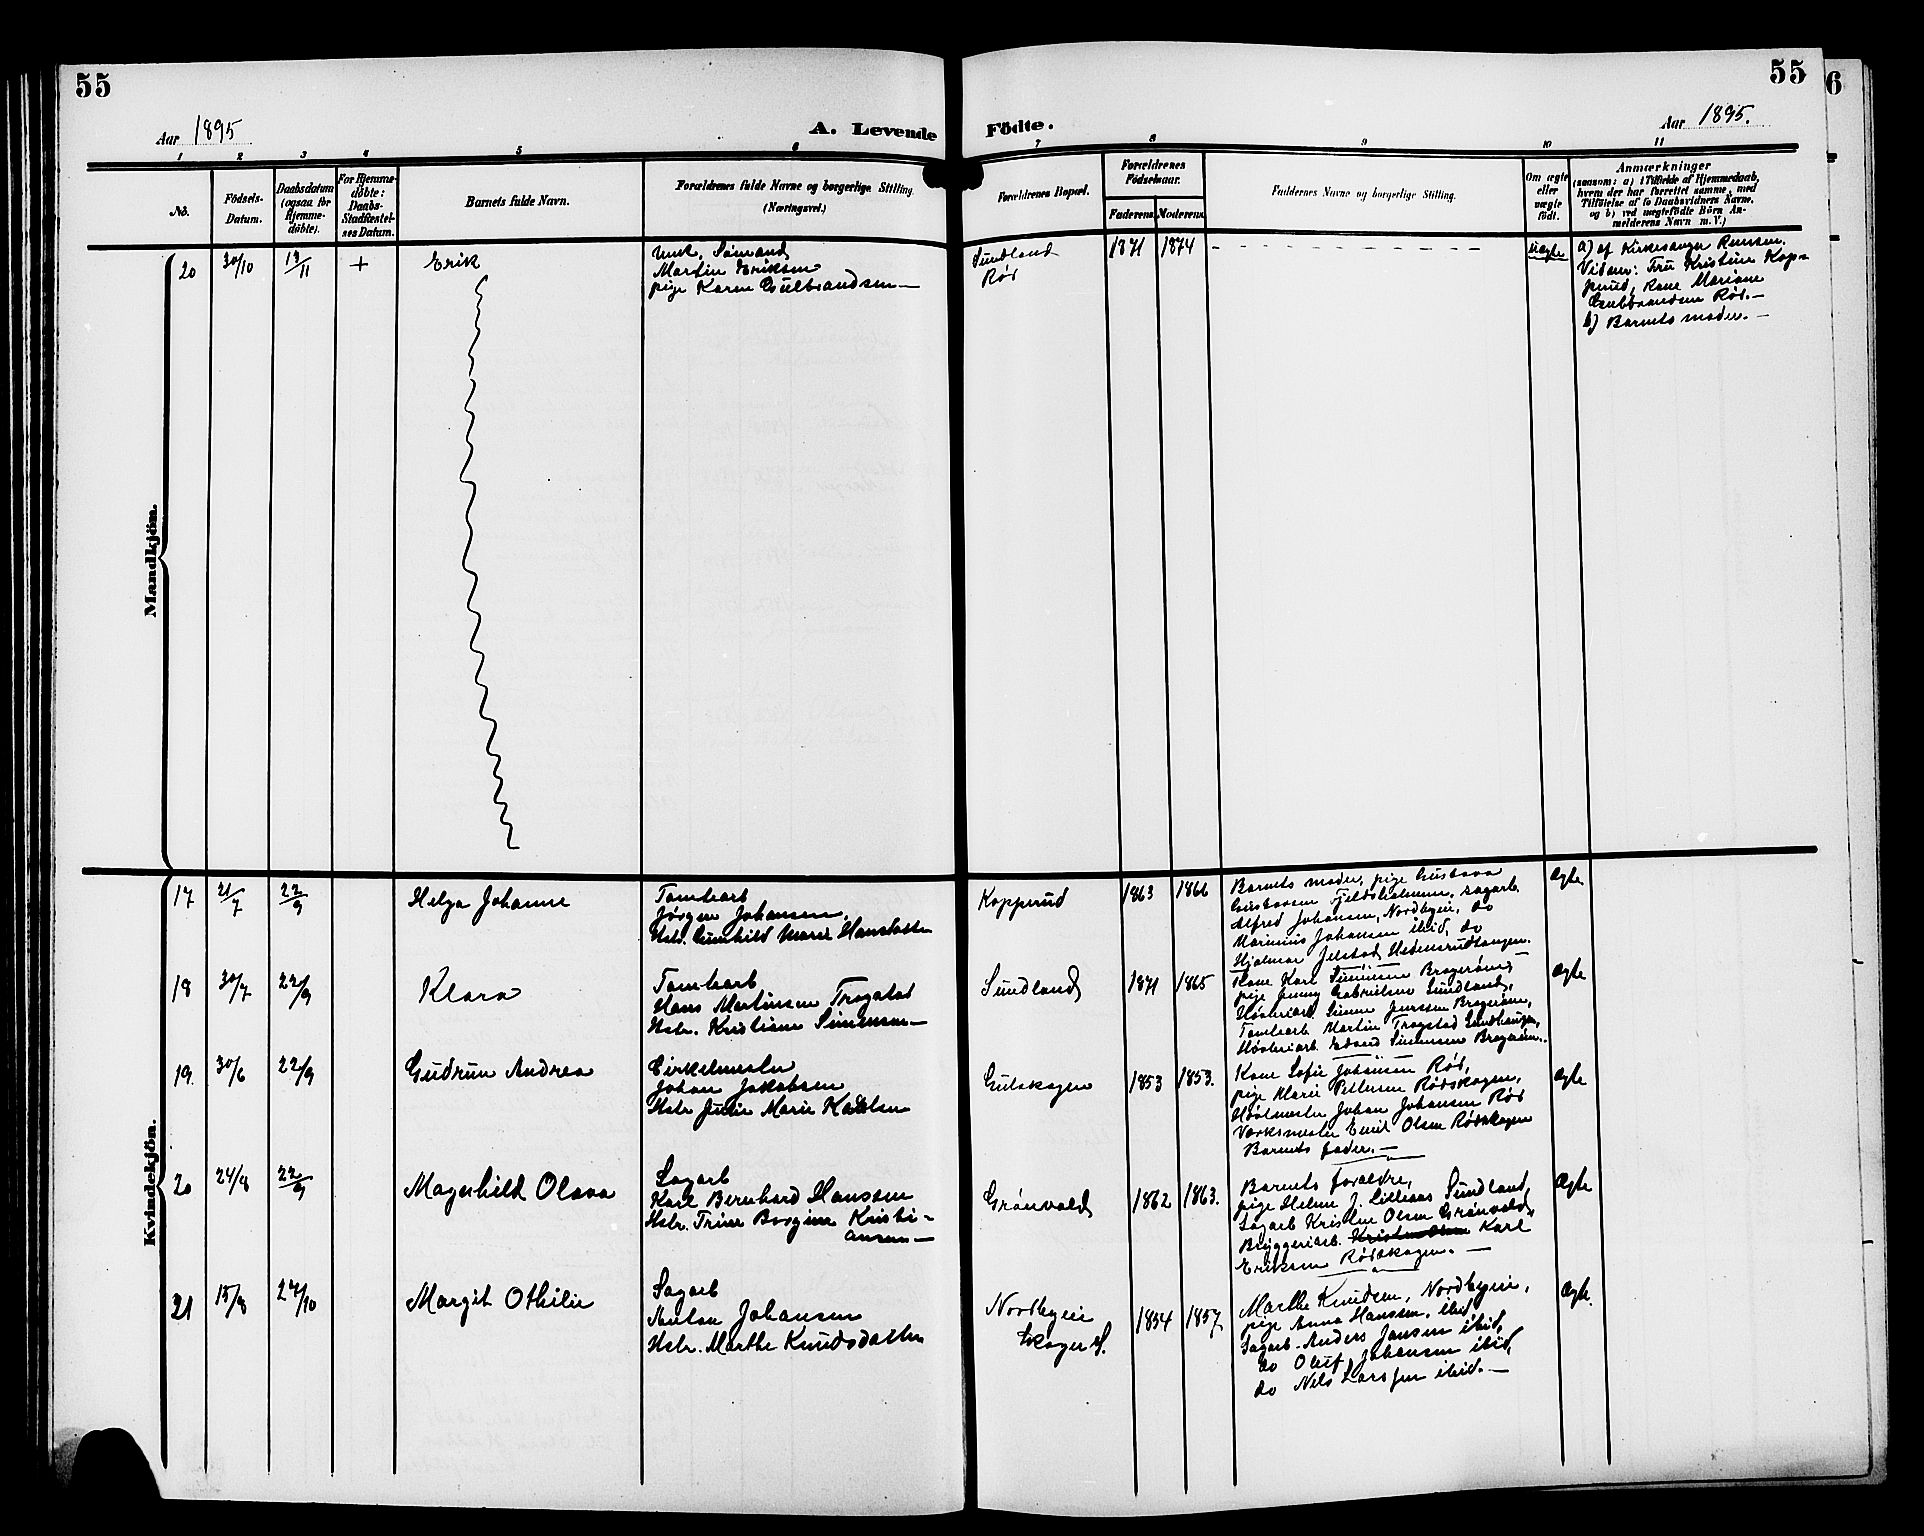 55
55
6
Aar 1895
A. Levende
Födte.
Aar 1895.
1 2 3 4 5 6 7 8 9 10 11
No.
Födsels-
Datum.
Daabsdatum
(ogsaa for
Hjemme-
döbte).
For Hjemme-
döbte:
Daabs-
Stadfæstel-
ses Datum.
Barnets fulde Navn.
Forældrenes fulde Navne og borgerlige Stilling.
(Næringsvei.)
Forældrenes Bopæl.
Forældrenes
Födselsaar.
Faderens
Moderens
Faddernes Navne og borgerlige Stilling.
Om ægte
eller
uægte
födt.
Anmærkninger
(saasom: a) i Tilfælde af Hjemmedaab,
hvem der har forrettet samme, med
Tilföielse af to Daabsvidners Navne,
og b) ved uægtefödte Börn An-
melderens Navn m. V.)
Mandkjön.
20 30/10 13/11 + Erik
Unk. Sömand
Martin Eriksen
pige Karen Gulbrandsen —
Sundland
Röd
1871 1874
uægte
a) af Kirkesanger
Vidner: Fru Kristine Kop-
perud, Kone Mariane
Gulbrandsen Röd. —
b) Barnets moder. —
Kvindekjön.
17 21/7 22/9 Helga Johanne
Tomtearb
Jörgen Johansen,
Hstr. Gunhild Marie Hansdatter
Kopperud
1863 1866
Barnets moder, pige Gustava
Gustavsen Fjeldsholmen, sagarb.
Alfred Johansen, Nordbyeie, do
Marinius Johansen ibid, do
Hjalmar Jelstad,
Ægte
18 30/7 22/9 Klara
Tomtearb
Hans Martinsen Trogstad
Hstr. Kristiane Simensen —
Sundland
1871 1865
Kone Karl Simensen Bragerøen,
pige Jenny Gabrielsen Sundland,
Høvleriarb. Simen Jenssen Bragerøen,
Tomtearb Martin Trogstad Sundhaugen,
Høvleriarb. Edvard Simensen Bragerøen.
Ægte
19. 30/6 22/9 Gudrun Andrea
Cirkelmester
Johan Jakobsen
Hstr Julie Marie Karlsen
Gulskogen
1853 1853.
Kone Sofie Johansen Röd,
pige Marie Pettersen Rødskogen,
Høvlmester Johan Johansen Röd
Værksmester Emil Olsen Rødskogen
Barnets fader. —
Ægte
20 24/8 22/9 Magnhild Olava
Sagarb
Karl Bernhard Hanssen
Hstr. Trine Borgine Kristi-
ansen —
Grønvold
1862 1863.
Barnets forældre,
pige Helene J. Lilleaas Sundland,
Sagarb Kristen Olsen Grønvold,
Bryggeriarb. Kristen Olsen Karl
Eriksen Rødskogen. —
Ægte
21 15/8 27/10 Margit Othilie
Sagarb
Anton Johansen
Hstr. Marthe Knudsdatter
Nordbyeie
Skoger S.
1854 1857
Marthe Knudsen, Nordbyeie,
pige Anna Hanssen, ibid,
Sagarb. Anders Jansen ibid,
do Oluf Johansen ibid,
do Nils Larssen ibid. —
Ægte.